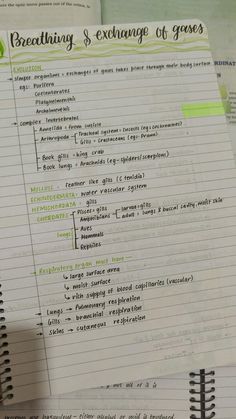 Breathing & exchange of gases
EVOLUTION
→ simple organisms = exchanges of gases takes place through their body surface
eg: Porifera
Coelenterates
Platyhelminthes
Aschelminthes
→ complex invertebrates
Annelida = from cuticle
Arthropoda Tracheal system = Insects (eg: cockroaches)
Gills = Crustaceans (eg: Prawn)
Book gills = king crab
Book lungs = Arachnids (eg: spiders/scorpions)
MOLLUSC = feather like gills (ctenidia)
ECHINODERMATA = water vascular system
HEMICHORDATA = gills
CHORDATES = Pisces = gills
Amphibians larvae = gills
adult = lungs & buccal cavity, moist skin
Lungs Aves
Mammals
Reptiles
Respiratory organ must have —
↳ large surface area
↳ moist surface
↳ rich supply of blood capillaries (vascular)
Lungs → Pulmonary respiration
Gills → branchial respiration
Skins → cutaneous respiration